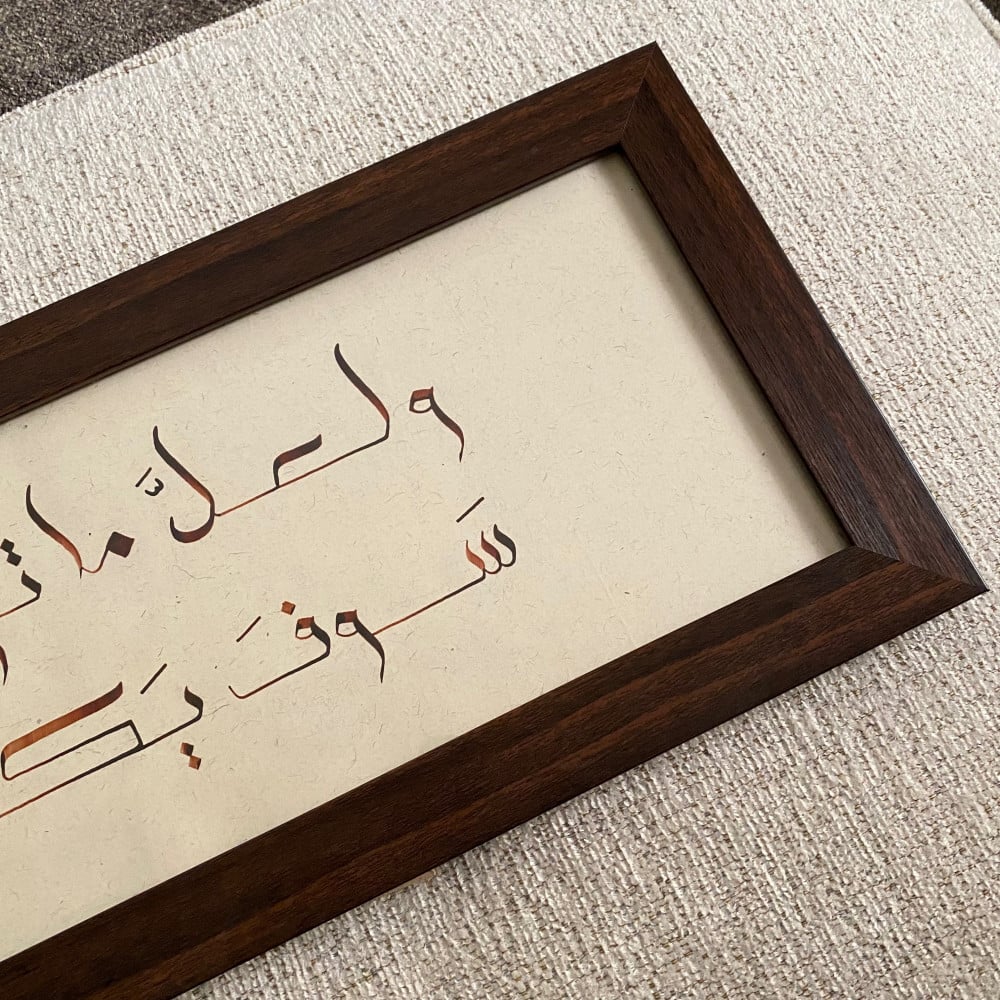 ولعلَّ ما ت
سَوفَ يَك